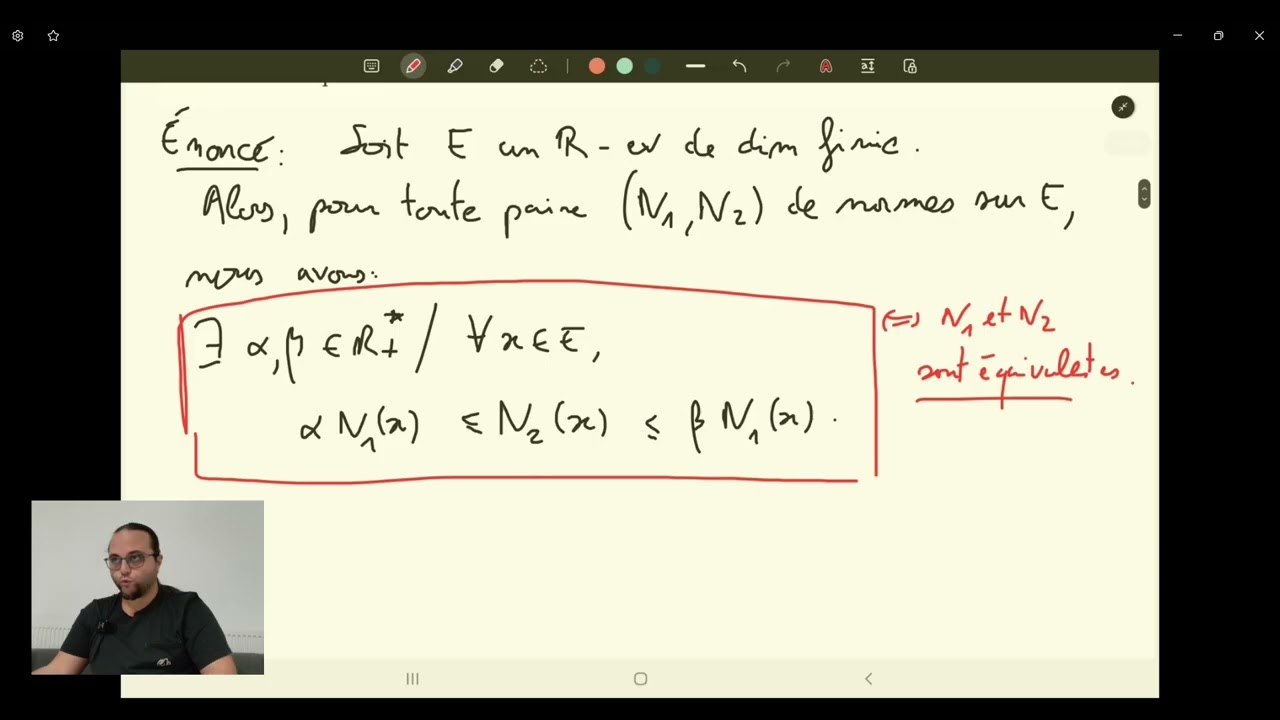 Énoncé: Soit E un ℝ-ev de dim finie.
Alors, pour toute paire (N₁,N₂) de normes sur E,
nous avons:
∃ α,β ∈ ℝ₊* / ∀ x ∈ E,
α N₁(x) ≤ N₂(x) ≤ β N₁(x).
(⇔) N₁ et N₂
sont équivalentes.